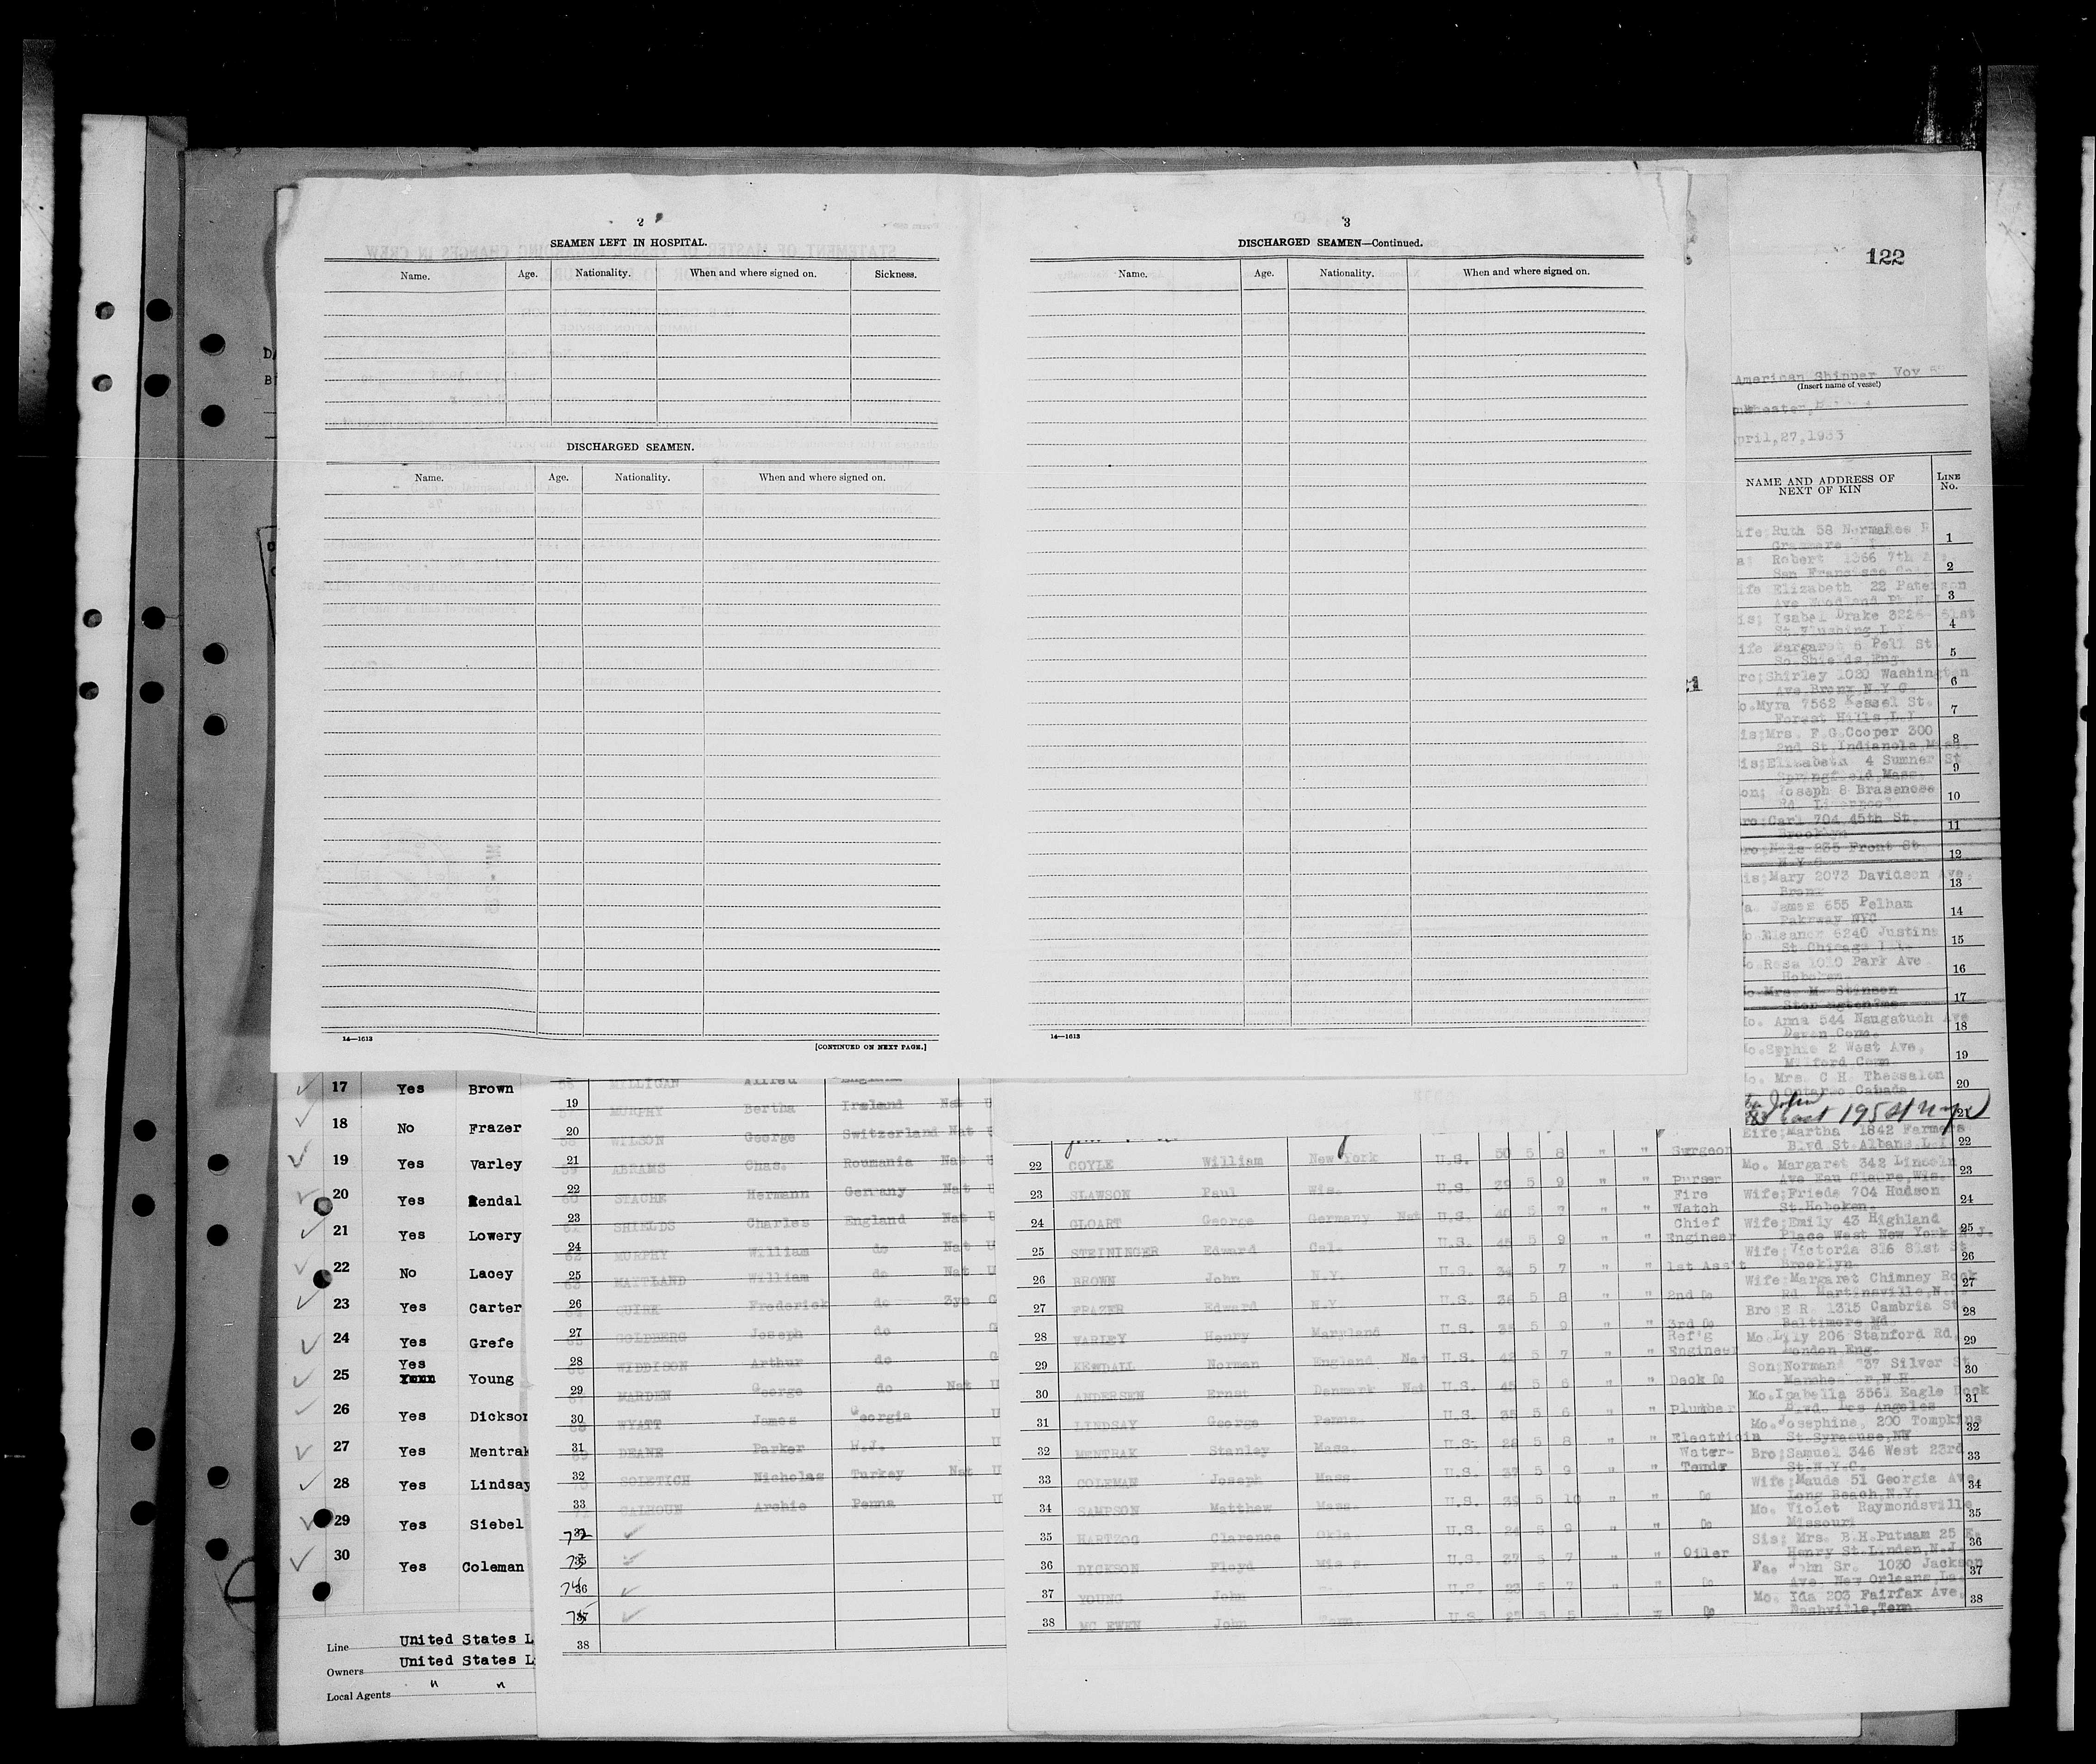 2
SEAMEN LEFT IN HOSPITAL.
Name. Age. Nationality. When and where signed on. Sickness.
DISCHARGED SEAMEN.
Name. Age. Nationality. When and where signed on.
14—1613
[CONTINUED ON NEXT PAGE.]
3
DISCHARGED SEAMEN—Continued.
Name. Age. Nationality. When and where signed on.
14—1613
122
American Shipper Voy
(Insert name of vessel)
April,27,1933
NAME AND ADDRESS OF NEXT OF KIN LINE No.
Ruth 58
1
Robert 1366 7th
San Francisco
2
Elizabeth 22 Paterson
3
Isabel Drake
St. Flushing L.I.
4
Margaret 8 Pell St.
So.Shields,Eng.
5
Shirley 1020 Washington
Ave.Bronx,N.Y.C.
6
Myra 7562 Kessel St.
Forest Hills,L.I.
7
Mrs. F.G.Cooper 300
2nd St.Indianola,
8
Elizabeth 4 Sumner St
Springfield,Mass.
9
Joseph 8 Brasenose
Rd. Liverpool
10
Carl 704 45th St.
Brooklyn
11
235 Front St
N.Y.C.
12
Mary 2073 Davidson Ave.
Bronx
13
James 655 Pelham
Pakrway NYC
14
Eleanor 6240 Justine
St.Chicago
15
Rosa 1010 Park Ave
Hoboken
16
Mrs. M. Stinson
17
Anna 544 Naugatuck Ave
Devon Conn.
18
Sophie 2 West Ave.
Milford Conn
19
Mrs. C H. Thessalon
Ontario Canada
20
John
21
Martha 1842 Farmers
Blvd St.Albans.L.I.
22
17 Yes Brown
18 No Frazer
19 Yes Varley
20 Yes Rendal
21 Yes Lowery
22 No Lacey
23 Yes Carter
24 Yes Grefe
Yes
25 Young
26 Yes Dickson
27 Yes Mentrak
28 Yes Lindsay
29 Yes Siebel
30 Yes Coleman
Line United States L
Owners United States L
Local Agents " "
MILLIGAN Alfred England
19 MURPHY Bertha Ireland Nat U
20 WILSON George Switzerland Nat U
21 ABRAMS Chas. Roumania Nat U
22 STACHE Hermann Germany Nat U
23 SHIELDS Charles England Nat U
24 MURPHY William do Nat U
25 MAITLAND William do Nat U
26 GUISE Frederick do
27 GOLDBERG Joseph do
28 WIDDISON Arthur do
29 MARDEN George do Nat U
30 WYATT James Georgia U
31 DEANE Parker N.J. U
32 SOLETICH Nicholas Turkey Nat U
33 CALHOUN Archie Penna U
72
73
74 36
75 37
38
22 COYLE William New York U.S. 50 5 8 " " Surgeon
23 SLAWSON Paul Wis. U.S. 39 5 9 " " Purser
Mo. Margaret 342 Lincoln
Ave Eau Claire,Wis.
23
24 GLOART George Germany Nat U.S. 40 5 7 " " Fire Watch
Wife;Frieda 704 Hudson
St.Hoboken.
24
25 STEININGER Edward Cal. U.S. 45 5 9 " " Chief Engineer
Wife;Emily 43 Highland
Place West New York N.J.
25
26 BROWN John N.Y. U.S. 34 5 7 " " 1st Ass't
Wife;Victoria 816 81st St
Brooklyn.
26
27 FRAZER Edward N.Y U.S. 36 5 8 " " 2nd Do
Wife;Margaret Chimney Rock
Rd. Martinsville,N.
27
28 VARLEY Henry Maryland U.S. 5 9 " " 3rd Do
Bro E R. 1315 Cambria St
Baltimore Md.
28
29 KENDALL Norman England Nat U.S. 42 5 7 " " Ref'g Engineer
Mo.Lily 206 Stanford Rd,
London Eng.
29
30 ANDERSEN Ernst Denmark Nat U.S. 45 5 6 " " Deck Do
Son;Norman 737 Silver St
Manchester,N.H.
30
31 LINDSAY George Penna. U.S. 35 5 6 " " Plumber
Mo.Isabella 3561 Eagle Rock
Blvd. Los Angeles
31
32 MENTRAK Stanley Mass. U.S. 28 5 8 " " Electricin
Mo.Josephine, 200 Tompkins
St.Syracuse,NY
32
33 COLEMAN Joseph Mass. U.S. 37 5 9 " " Water-Tender
Bro;Samuel 346 West 23rd
St.N.Y.C.
33
34 SAMPSON Matthew Mass. U.S. 39 5 10 " " Do
Wife;Maude 51 Georgia Ave
Long Beach,N.Y.
34
35 HARTZOG Clarence Okla. U.S. 24 5 9 " " Do
Mo. Violet Raymondsville
Missouri
35
36 DICKSON Floyd Miss. U.S. 27 5 7 " " Oiler
Sis; Mrs. B.H.Putmam 25 E.
Henry St.Linden,N.J.
36
37 YOUNG John U.S. 23 5 7 " " Do
Fa. John Sr. 1030 Jackson
Ave. New Orleans,La.
37
38 MC EWEN John Tenn. U.S. 27 5 5 " Do
Mo. Ida 203 Fairfax Ave.
Nashville,Tenn
38